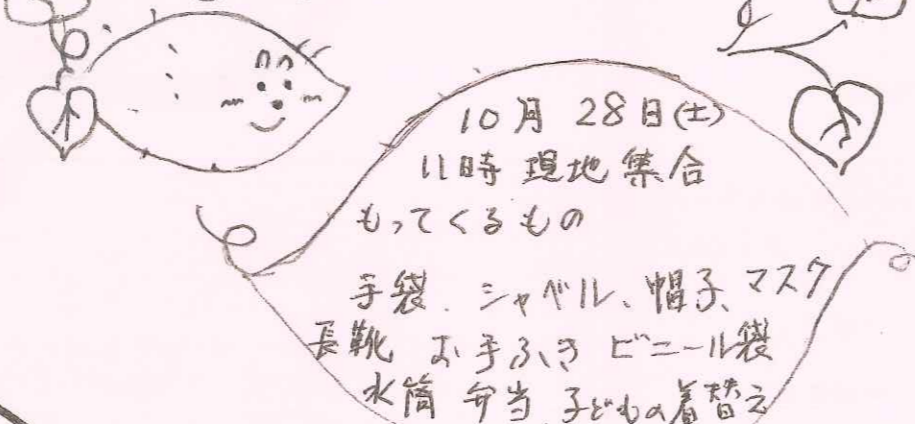 10月 28日(土)
11時 現地集合
もってくるもの
手袋、シャベル、帽子、マスク
長靴 お手ふき ビニール袋
水筒 弁当 子どもの着替え